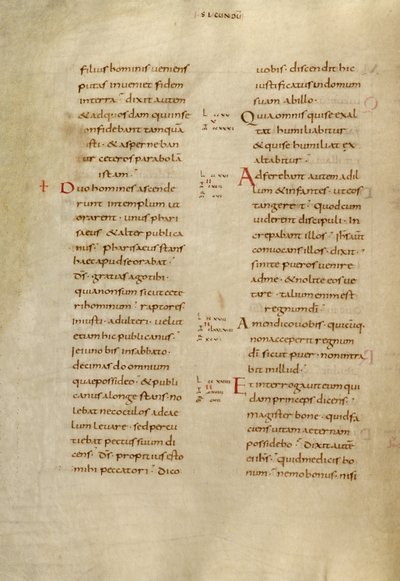 SECUNDU
filius hominis veniens
putas inveniet fidem
interra · dixit autem
& adquosdam quiinse
confidebant tamquā
isti · & asperneban
tur ceteros parabola
istam ·
Duo homines ascende
runt intemplum ut
orarent · unus phari
saeus & alter publica
nus · pharisaeus stans
haec apudse orabat ·
ds · gratias agotibi ·
quianonsum sicut cete
rihominum · raptores ·
iniusti · adulteri · velut
etiam hic publicanus ·
ieiuno bis insabbato ·
decimas do omnium
quaepossideo · & publi
canus alonge stans · no
lebat necoculos adcae
lum levare · sed percu
tiebat pectus suum di
cens · ds · propitius esto
mihi peccatori · dico
vobis · discendit hic
iustificatus indomum
suam abillo ·
Quia omnis quise exal
tat humiliabitur
& quise humiliat ex
altabitur ·
Adferebant autem adil
lum & infantes · ut eos
tangeret · quod cum
viderent discipuli · in
crepabant illos · ihs aut
convocans illos · dixit ·
sinite pueros venire
adme · & nolite eos ve
tare · talium enim est
regnum di ·
Amen dico vobis · quicūq ·
non acceperit regnum
di sicut puer · non intra
bit in illud ·
Et interrogavit eum qui
dam princeps dicens ·
magister bone · quid fa
ciens vitam aeternam
possidebo · dixit autē
ei ihs · quid me dicis bo
num · nemo bonus · nisi